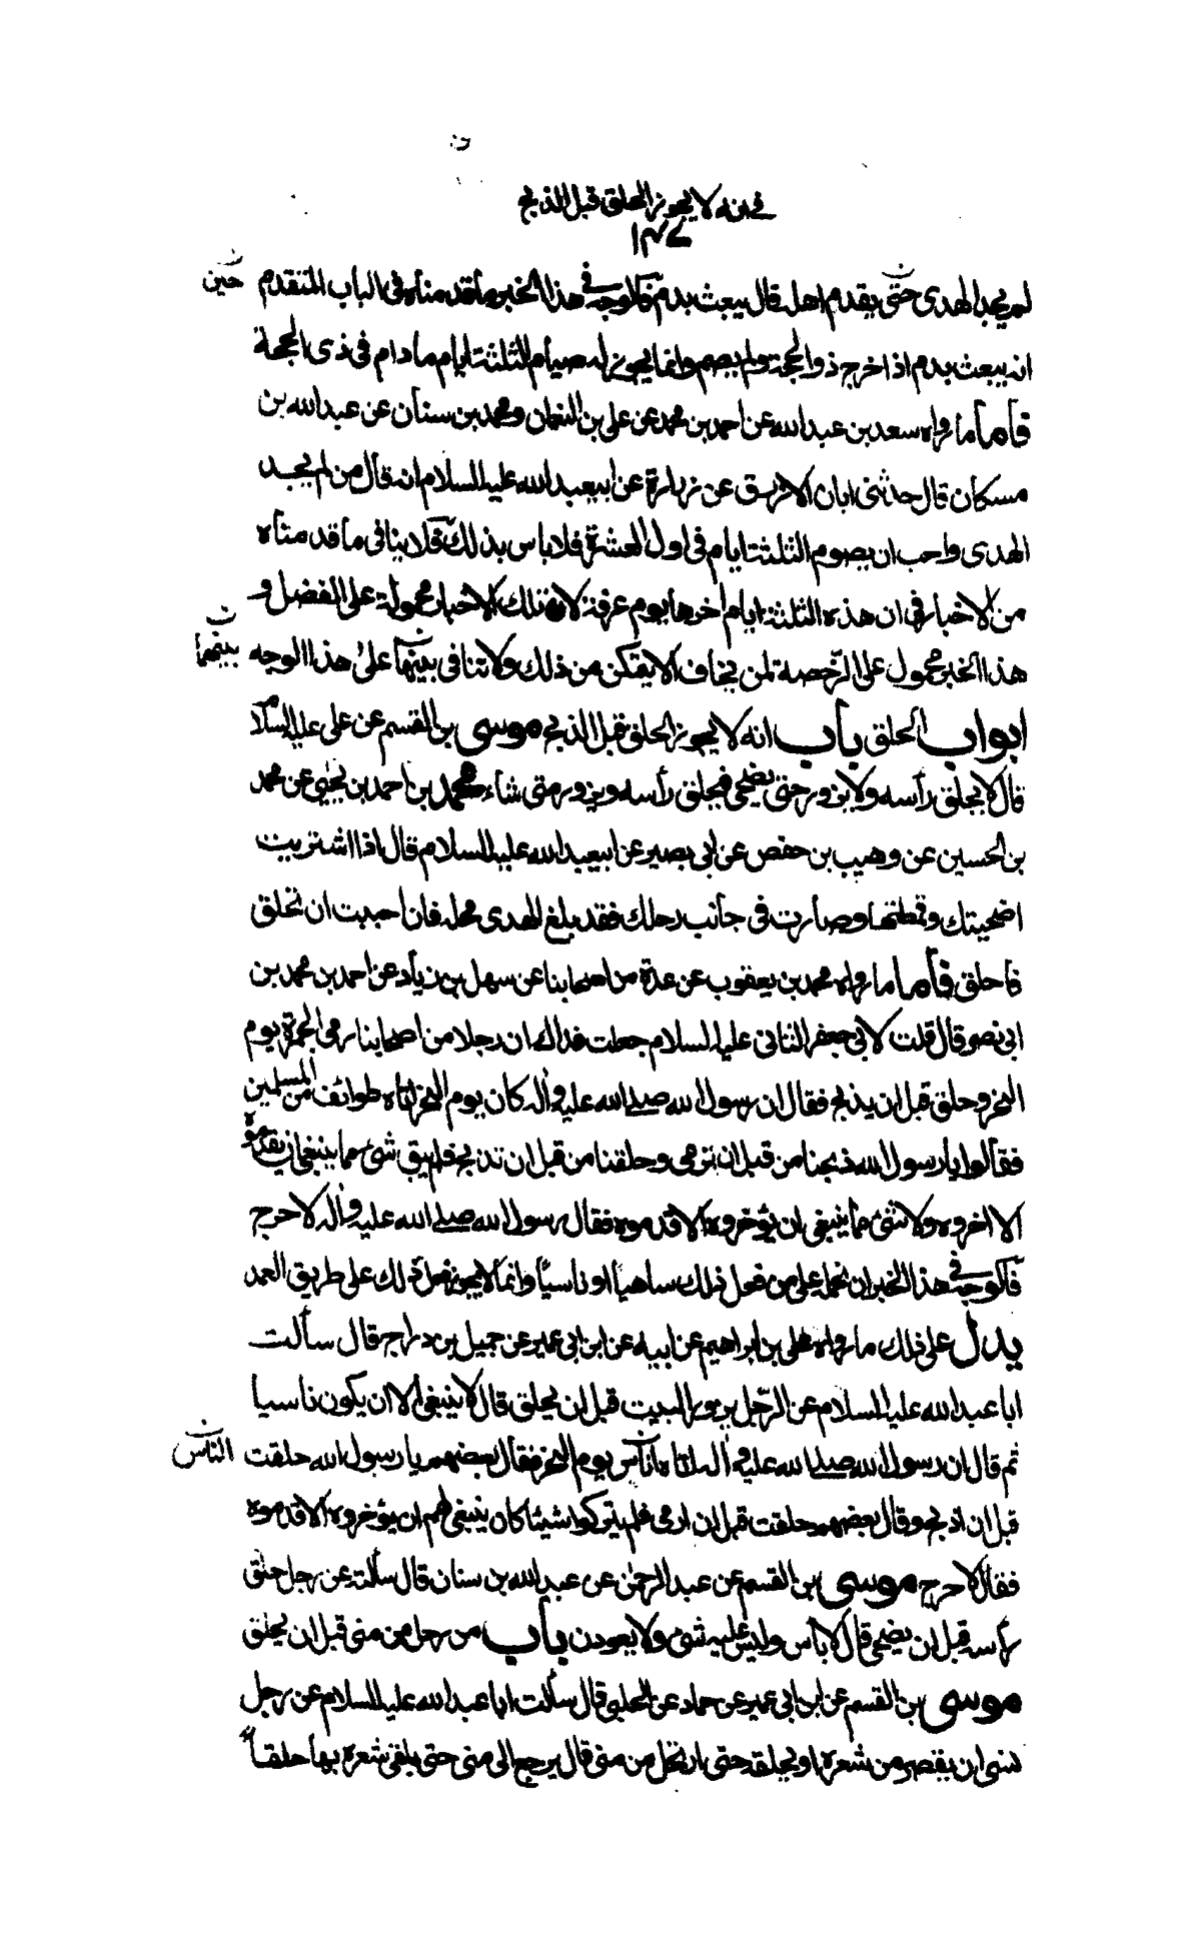 في انه لا يجوز الحلق قبل الذبح
لم يجد الهدى حتى يقدم اهله قال يبعث بدم فالوجه في هذا الخبر ما قدمناه فى الباب المتقدم
حين
انه يبعث بدم اذا خرج ذو الحجة ولم يصم وانما يجوز له صيام الثلثة ايام مادام فى ذى الحجة
فأما ما رواه سعد بن عبدالله عن احمد بن محمد عن على بن النعمان ومحمد بن سنان عن عبدالله بن
مسكان قال حدثنى ابان الازرق عن زرارة عن ابيعبدالله عليه السلام انه قال من لم يجد
الهدى واحب ان يصوم الثلثة ايام فى اول العشرة فلا باس بذلك فلا ينافى ما قدمناه
من الاخبار فى ان هذه الثلثة ايام آخرها يوم عرفة لان تلك الاخبار محمولة على الفضل و
هذا الخبر محمول على الرخصة لمن يخاف الا يتمكن من ذلك ولا تنافى بينها على هذا الوجه
بينهما
ابواب الحلق باب انه لا يجوز الحلق قبل الذبح موسى بن القسم عن على عليه السلام
قال لا يحلق رأسه ولا يزور حتى يضحى فيحلق رأسه ويزور متى شاء محمد بن احمد بن يحيى عن محمد
بن الحسين عن وهيب بن حفص عن ابى بصير عن ابيعبدالله عليه السلام قال اذا اشتريت
اضحيتك وقمطتها وصارت فى جانب رحلك فقد بلغ الهدى محله فان احببت ان تحلق
فاحلق فأما ما رواه محمد بن يعقوب عن عدة من اصحابنا عن سهل بن زياد عن احمد بن محمد بن
ابى نصر قال قلت لابى جعفر الثانى عليه السلام جعلت فداك ان رجلا من اصحابنا رمى الجمرة يوم
النحر وحلق قبل ان يذبح فقال ان رسول الله صلى الله عليه واله كان يوم النحر اتاه طوائف من المسلمين
فقالوا يا رسول الله ذبحنا من قبل ان نرمى وحلقنا من قبل ان نذبح فلم يبق شئ مما ينبغى ان يقدموه
الا اخروه ولا شئ مما ينبغى ان يؤخروه الا قدموه فقال رسول الله صلى الله عليه واله لا حرج
فالوجه فى هذا الخبر ان نحمله على من فعل ذلك ساهيا او ناسيا وانما لا يجوز فعل ذلك على طريق العمد
يدل على ذلك ما رواه على بن ابراهيم عن ابيه عن ابن ابى عمير عن جميل بن دراج قال سألت
ابا عبدالله عليه السلام عن الرجل يزور البيت قبل ان يحلق قال لا ينبغى الا ان يكون ناسيا
ثم قال ان رسول الله صلى الله عليه واله اتاه اناس يوم النحر فقال بعضهم يا رسول الله حلقت
الناس
قبل ان اذبح وقال بعضهم حلقت قبل ان ارمى فلم يتركوا شيئا كان ينبغى لهم ان يؤخروه الا قدموه
فقال لا حرج موسى بن القسم عن عبد الرحمن عن عبدالله بن سنان قال سألته عن رجل حلق
رأسه قبل ان يضحى قال لا بأس وليس عليه شئ ولا يعودن باب من رحل من منى قبل ان يحلق
موسى بن القسم عن ابن ابى عمير عن حماد عن الحلبى قال سألت ابا عبدالله عليه السلام عن رجل
نسى ان يقصر من شعره او يحلقه حتى ارتحل من منى قال يرجع الى منى حتى يلقى شعره بها حلقا